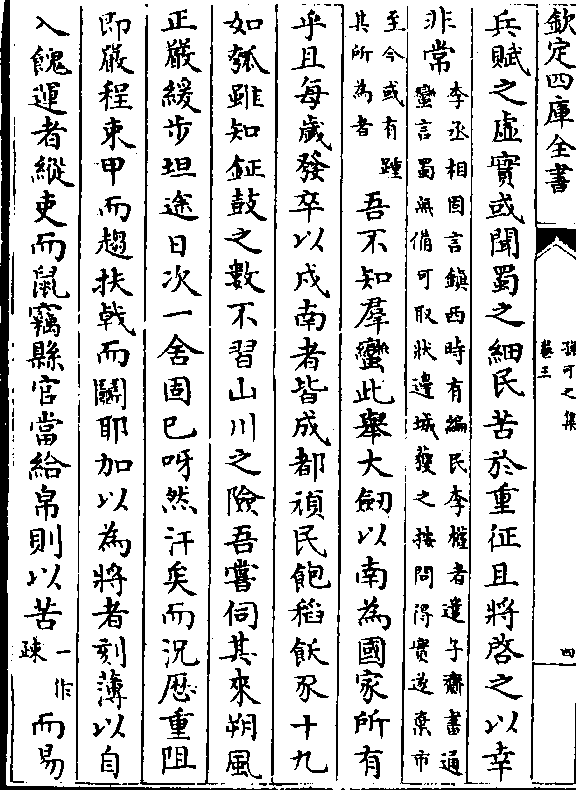 欽定四庫全書
孫可之集
卷三
四
兵賦之虛實或聞蜀之細民苦於重征且將啓之以幸
非常李丞相固言鎮西時有編民李權者遣子齎書通
蠻言蜀無備可取狀邊城獲之按問得實遂棄市
至今或有踵
其所為者
吾不知羣蠻此舉大劒以南為國家所有
乎且每歲發卒以戍南者皆成都頑民飽稻飫豕十九
如瓠雖知鉦鼓之數不習山川之險吾嘗伺其來朔風
正嚴緩步坦途日次一舍固已呀然汗矣而況歷重阻
即嚴程束甲而趨扶戟而鬭耶加以為將者刻薄以自
入餽運者縱吏而鼠竊縣官當給帛則以苦一作疎而易